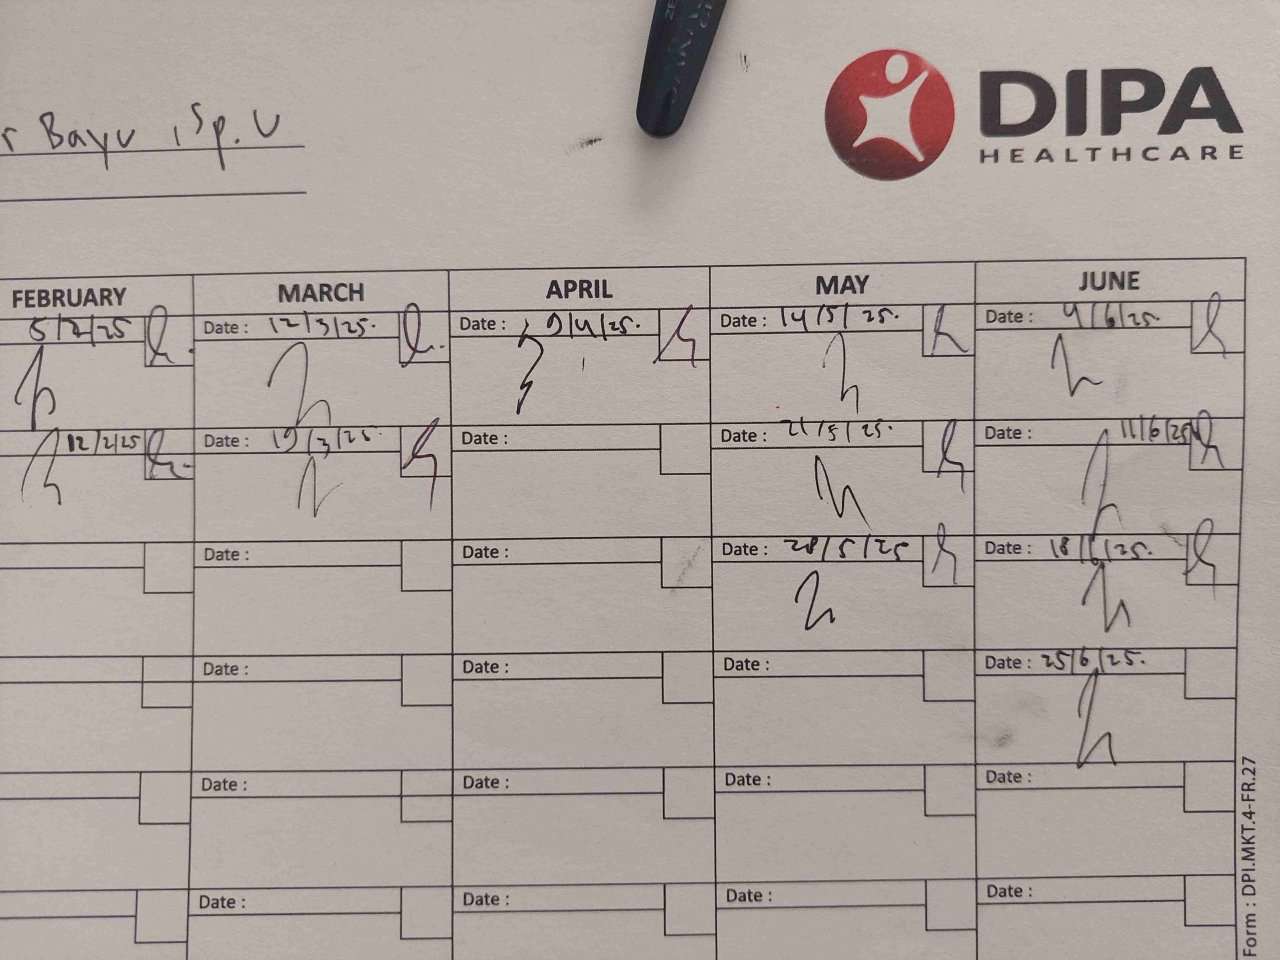 r Bayu, Sp. U
DIPA
HEALTHCARE
FEBRUARY MARCH APRIL MAY JUNE
5/2/25 Date : 12/3/25. Date : 9/4/25. Date : 14/5/25. Date : 4/6/25.
12/2/25 Date : 19/3/25. Date : Date : 21/5/25. Date : 11/6/25
Date : Date : Date : 28/5/25 Date : 18/6/25.
Date : Date : Date : Date : 25/6/25.
Date : Date : Date : Date :
Date : Date : Date : Date :
Form : DPI.MKT.4-FR.27